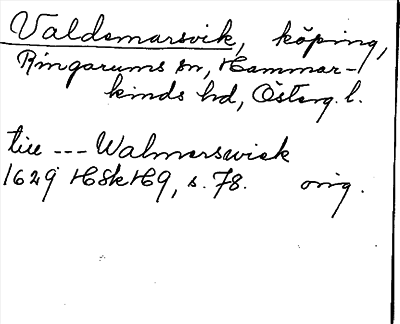 Valdemarsvik, köping,
Ringarums sn, Hammar-
kinds hd, Österg. l.
till --- Walmerswiek
1629 HSkH9, s. 78. orig.